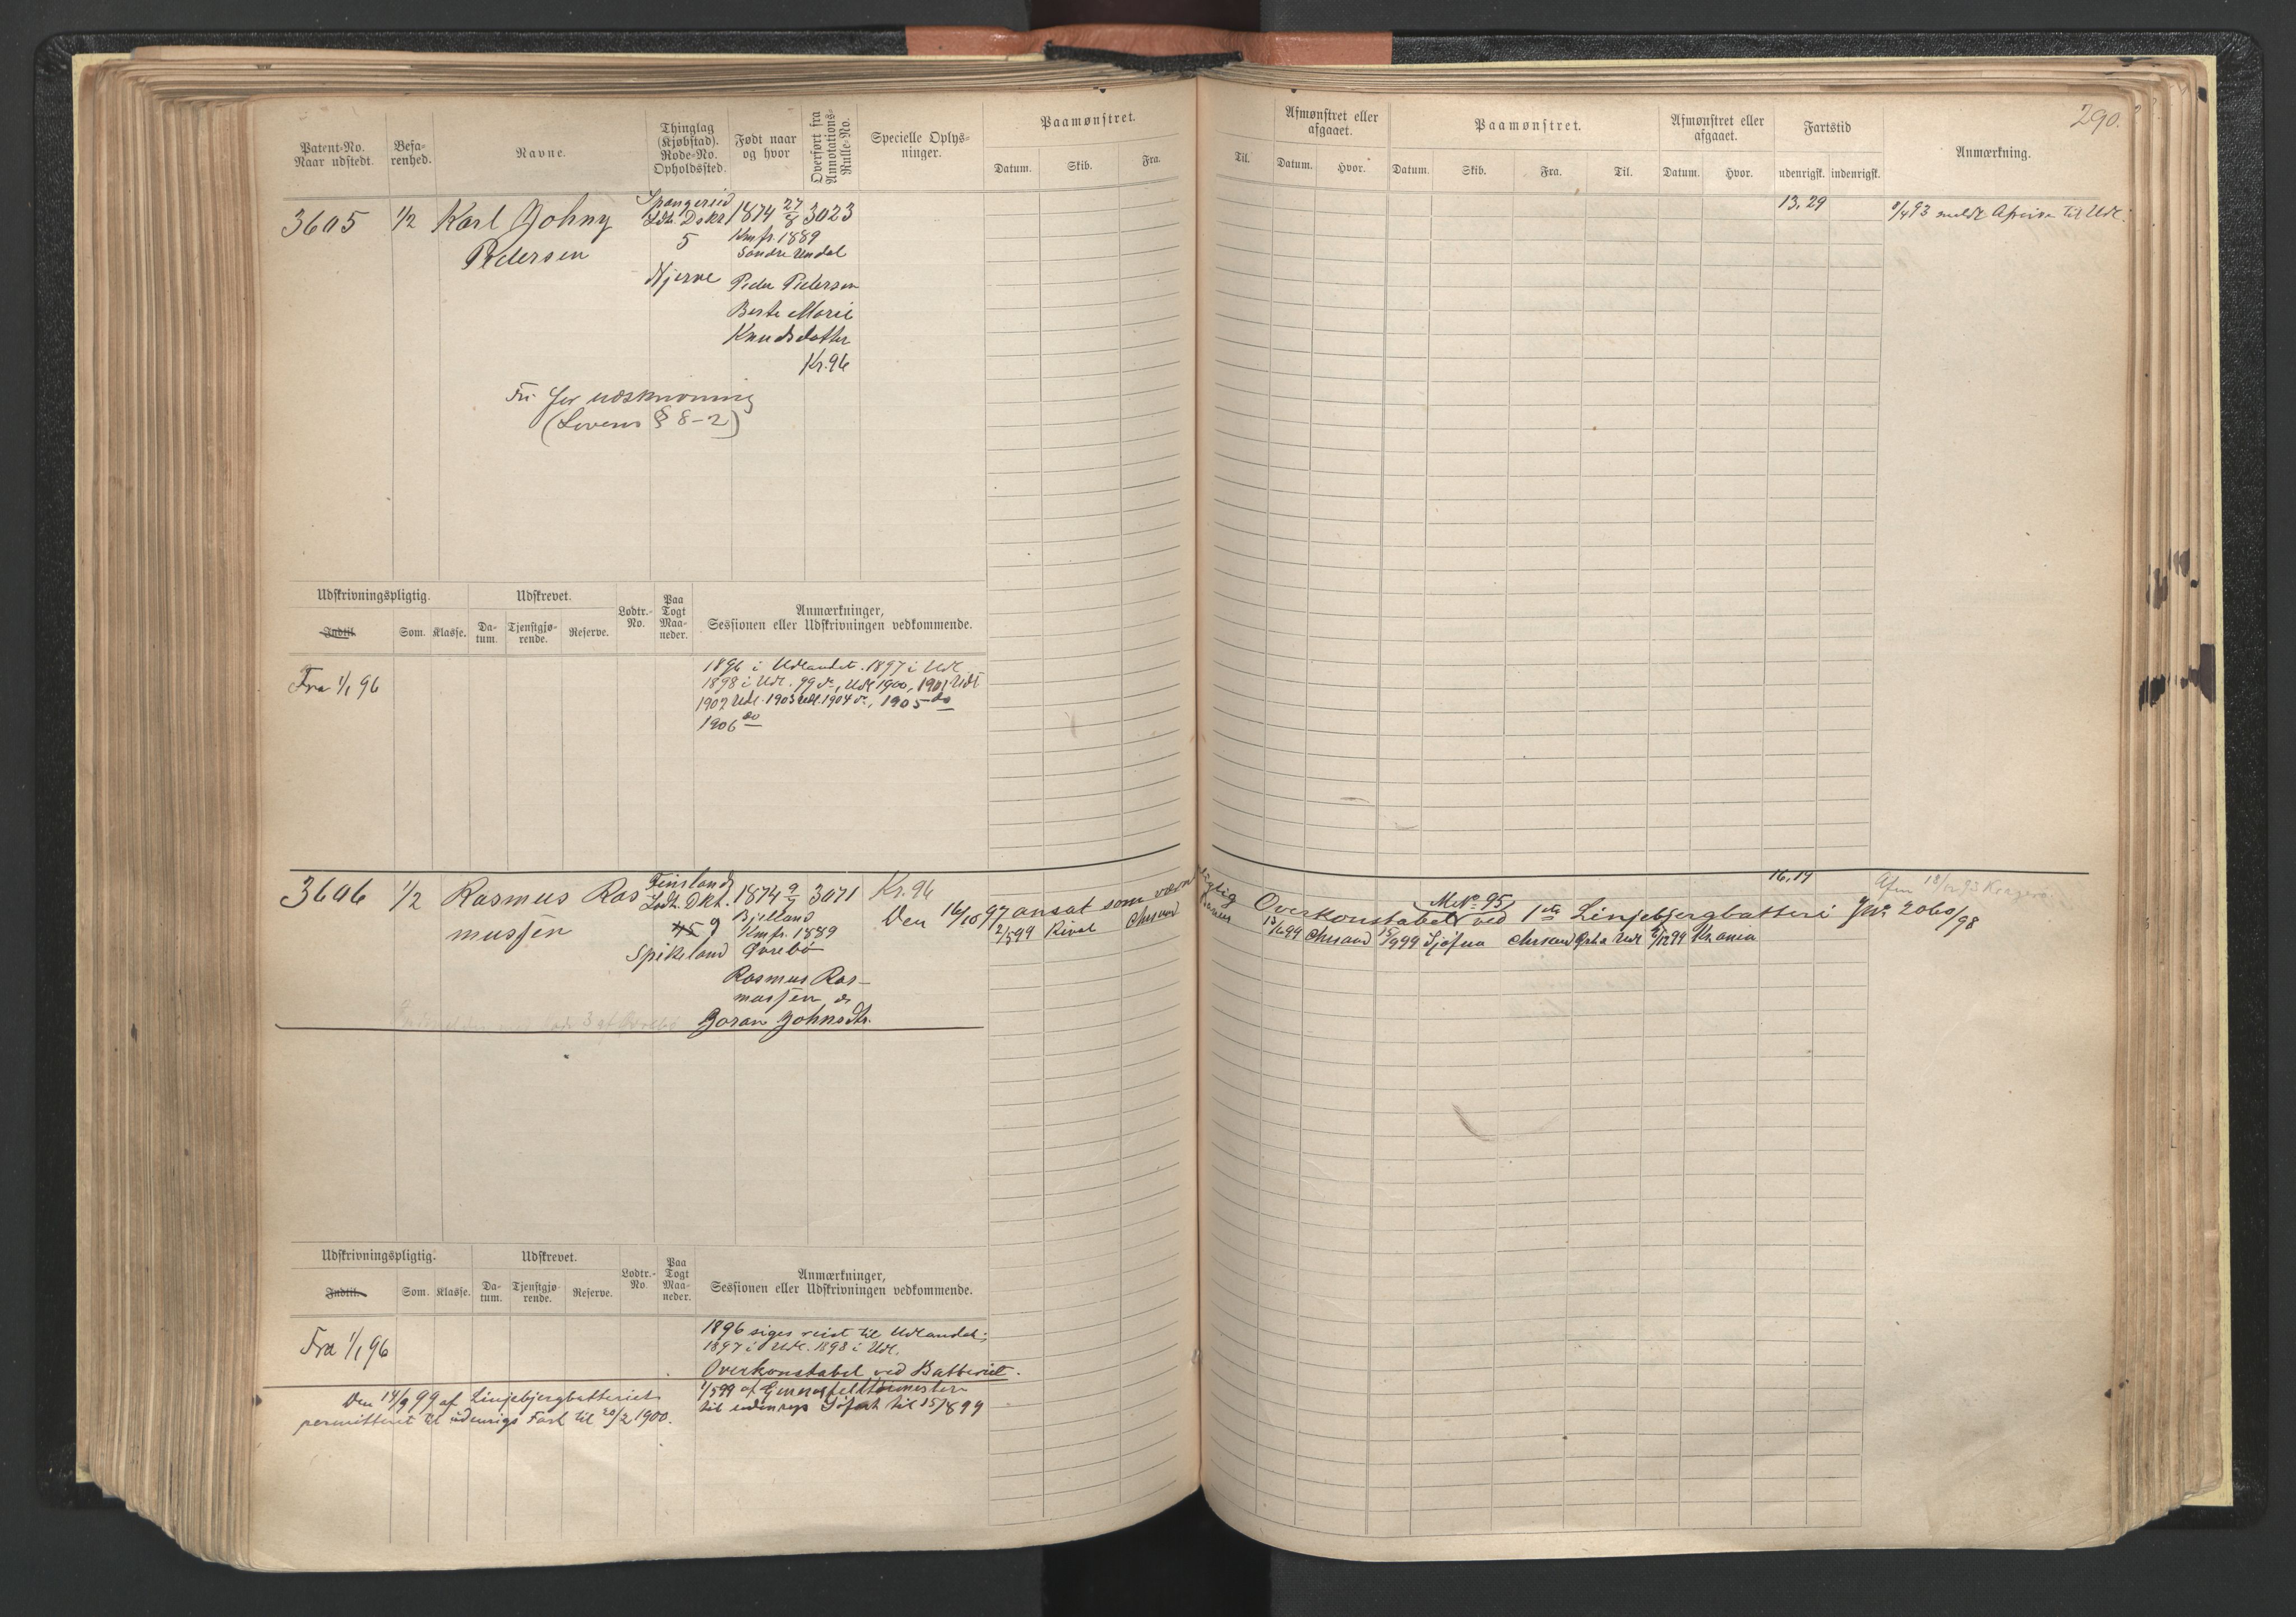 290.
Patent-No. Naar udstedt.
Befa-renhed.
Navne.
Thinglag (Kjøbstad). Rode-No. Opholdssted.
Født naar og hvor
Overført fra Annotations-Rulle-No.
Specielle Oplys-ninger.
Paamønstret.
Datum. Skib. Fra.
Til.
Afmønstret eller afgaaet.
Datum. Hvor.
Paamønstret.
Datum. Skib. Fra. Til.
Afmønstret eller afgaaet.
Datum. Hvor.
Fartstid
udenrigsk. indenrigsk.
Anmærkning.
3605 1/2 Karl Johny
Pedersen
Spangereid
Ldh. Dskt
5
Njerve
1874 27/8 3023
Kmfr. 1889
Søndre Undal
Peder Pedersen
Berte Marie
Knudsdatter
Kr. 96
Fri for udskrivning
(Lovens § 8-2)
13,29
8/4 93 meldt Afreise til Udl.
Udskrivningspligtig. Udskrevet. Lodtr.-No. Paa Togt Maa-neder. Anmærkninger,
Sessionen eller Udskrivningen vedkommende.
Indtil. Som. Klasse. Da-tum. Tjenstgjø-rende. Reserve.
Fra 1/1 96
1896 i Udlandet. 1897 i Udl.
1898 i Udl. 99 do, Udl 1900, 1901 Udl
1902 Udl. 1903 Udl. 1904 do, 1905 do
1906 do
3606 1/2 Rasmus Ras-
mussen
Finsland
Ldh. Dkt.
45 9
Spikeland
1874 9/7 3071
Bjelland
Kmfr. 1889
Øvrebø
Rasmus Ras-
mussen &
Joran Johnsdtr.
Kr. 96
Den 16/10 97 ansat som værnepligtig Overkonstabel MNo 95 ved 1ste Linjebjergbatteri JNo 2060/98
2/5 99 Rival Chrsand
13/6 99 Chrsand 15/9 99 Sjøfna Chrsand Udl 6/12 99 Khania
16,19
Udskrivningspligtig. Udskrevet. Lodtr.-No. Paa Togt Maa-neder. Anmærkninger,
Sessionen eller Udskrivningen vedkommende.
Indtil. Som. Klasse. Da-tum. Tjenstgjø-rende. Reserve.
Fra 1/1 96
1896 siges reist til Udlandet;
1897 i Udl. 1898 i Udl.
Overkonstabel ved Batteriet.
1/5 99 af Generalfelttøimesteren
til udenrigs Sjøfart til 15/8 99
Den 14/9 99 af Linjebjergbatteriet
permitteret til udenrigs Fart til 20/2 1900.